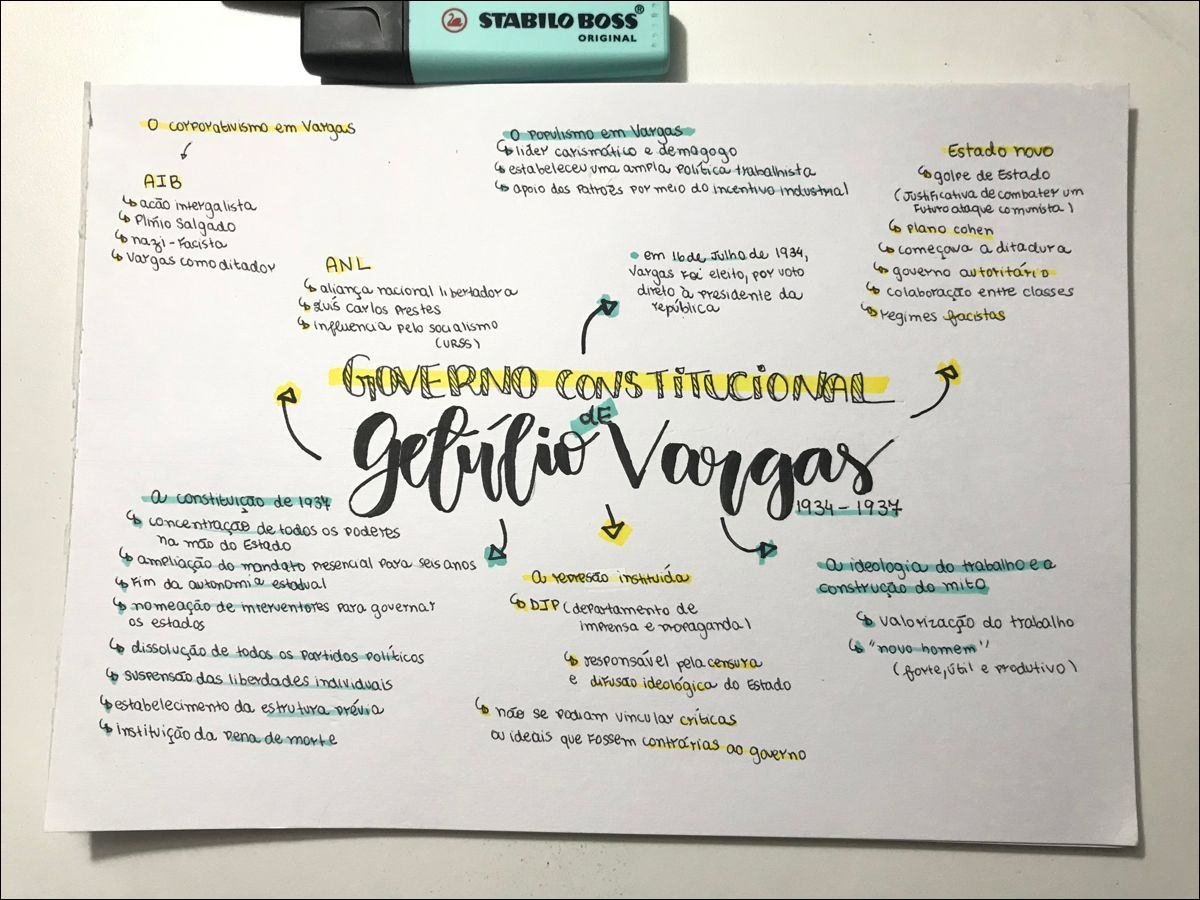 STABILO BOSS®
ORIGINAL
O corporativismo em Vargas
AIB
ação intergalista
Plínio Salgado
nazi-facista
Vargas como ditador
ANL
aliança nacional libertadora
Luís Carlos Prestes
influencia pelo socialismo
(URSS)
O populismo em Vargas
líder carismático e demagogo
estabeleceu uma ampla política trabalhista
apoio dos patrões por meio do incentivo industrial
em 16 de Julho de 1934,
Vargas foi eleito, por voto
direto à presidente da
república
Estado novo
golpe de Estado
(Justificativa de combater um
futuro ataque comunista)
plano cohen
começava a ditadura
governo autoritário
colaboração entre classes
regimes facistas
GOVERNO CONSTITUCIONAL
dE
Getúlio Vargas
1934-1937
A constituição de 1937
concentração de todos os poderes
na mão do Estado
ampliação do mandato presencial para seis anos
Fim da autonomia estadual
nomeação de interventores para governar
os estados
dissolução de todos os partidos políticos
suspensão das liberdades individuais
estabelecimento da estrutura prévia
instituição da pena de morte
A represão instituída
DIP (departamento de
imprensa e propaganda)
responsável pela censura
e difusão ideológica do Estado
não se podiam vincular críticas
ou ideais que fossem contrárias ao governo
A ideologia do trabalho e a
construção do mito
valorização do trabalho
"novo homem"
(forte, útil e produtivo)